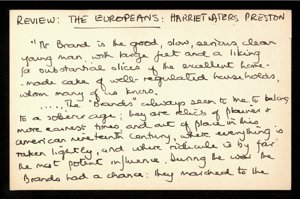 REVIEW: THE EUROPEANS: HARRIET WATERS PRESTON
"Mr Brand is the good, slow, serious, clean
young man, with large feet and a liking
for substantial slices of the excellent home-
-made cake of well-regulated households,
whom many of us know.
.....The "Brands" always seem to me to belong
to a soberer age; they are relics of plainer &
more earnest times, and out of place in this
american nineteenth century, where everything is
taken lightly, and where ridicule is by far
the most potent influence. During the war the
Brands had a chance: they marched to the